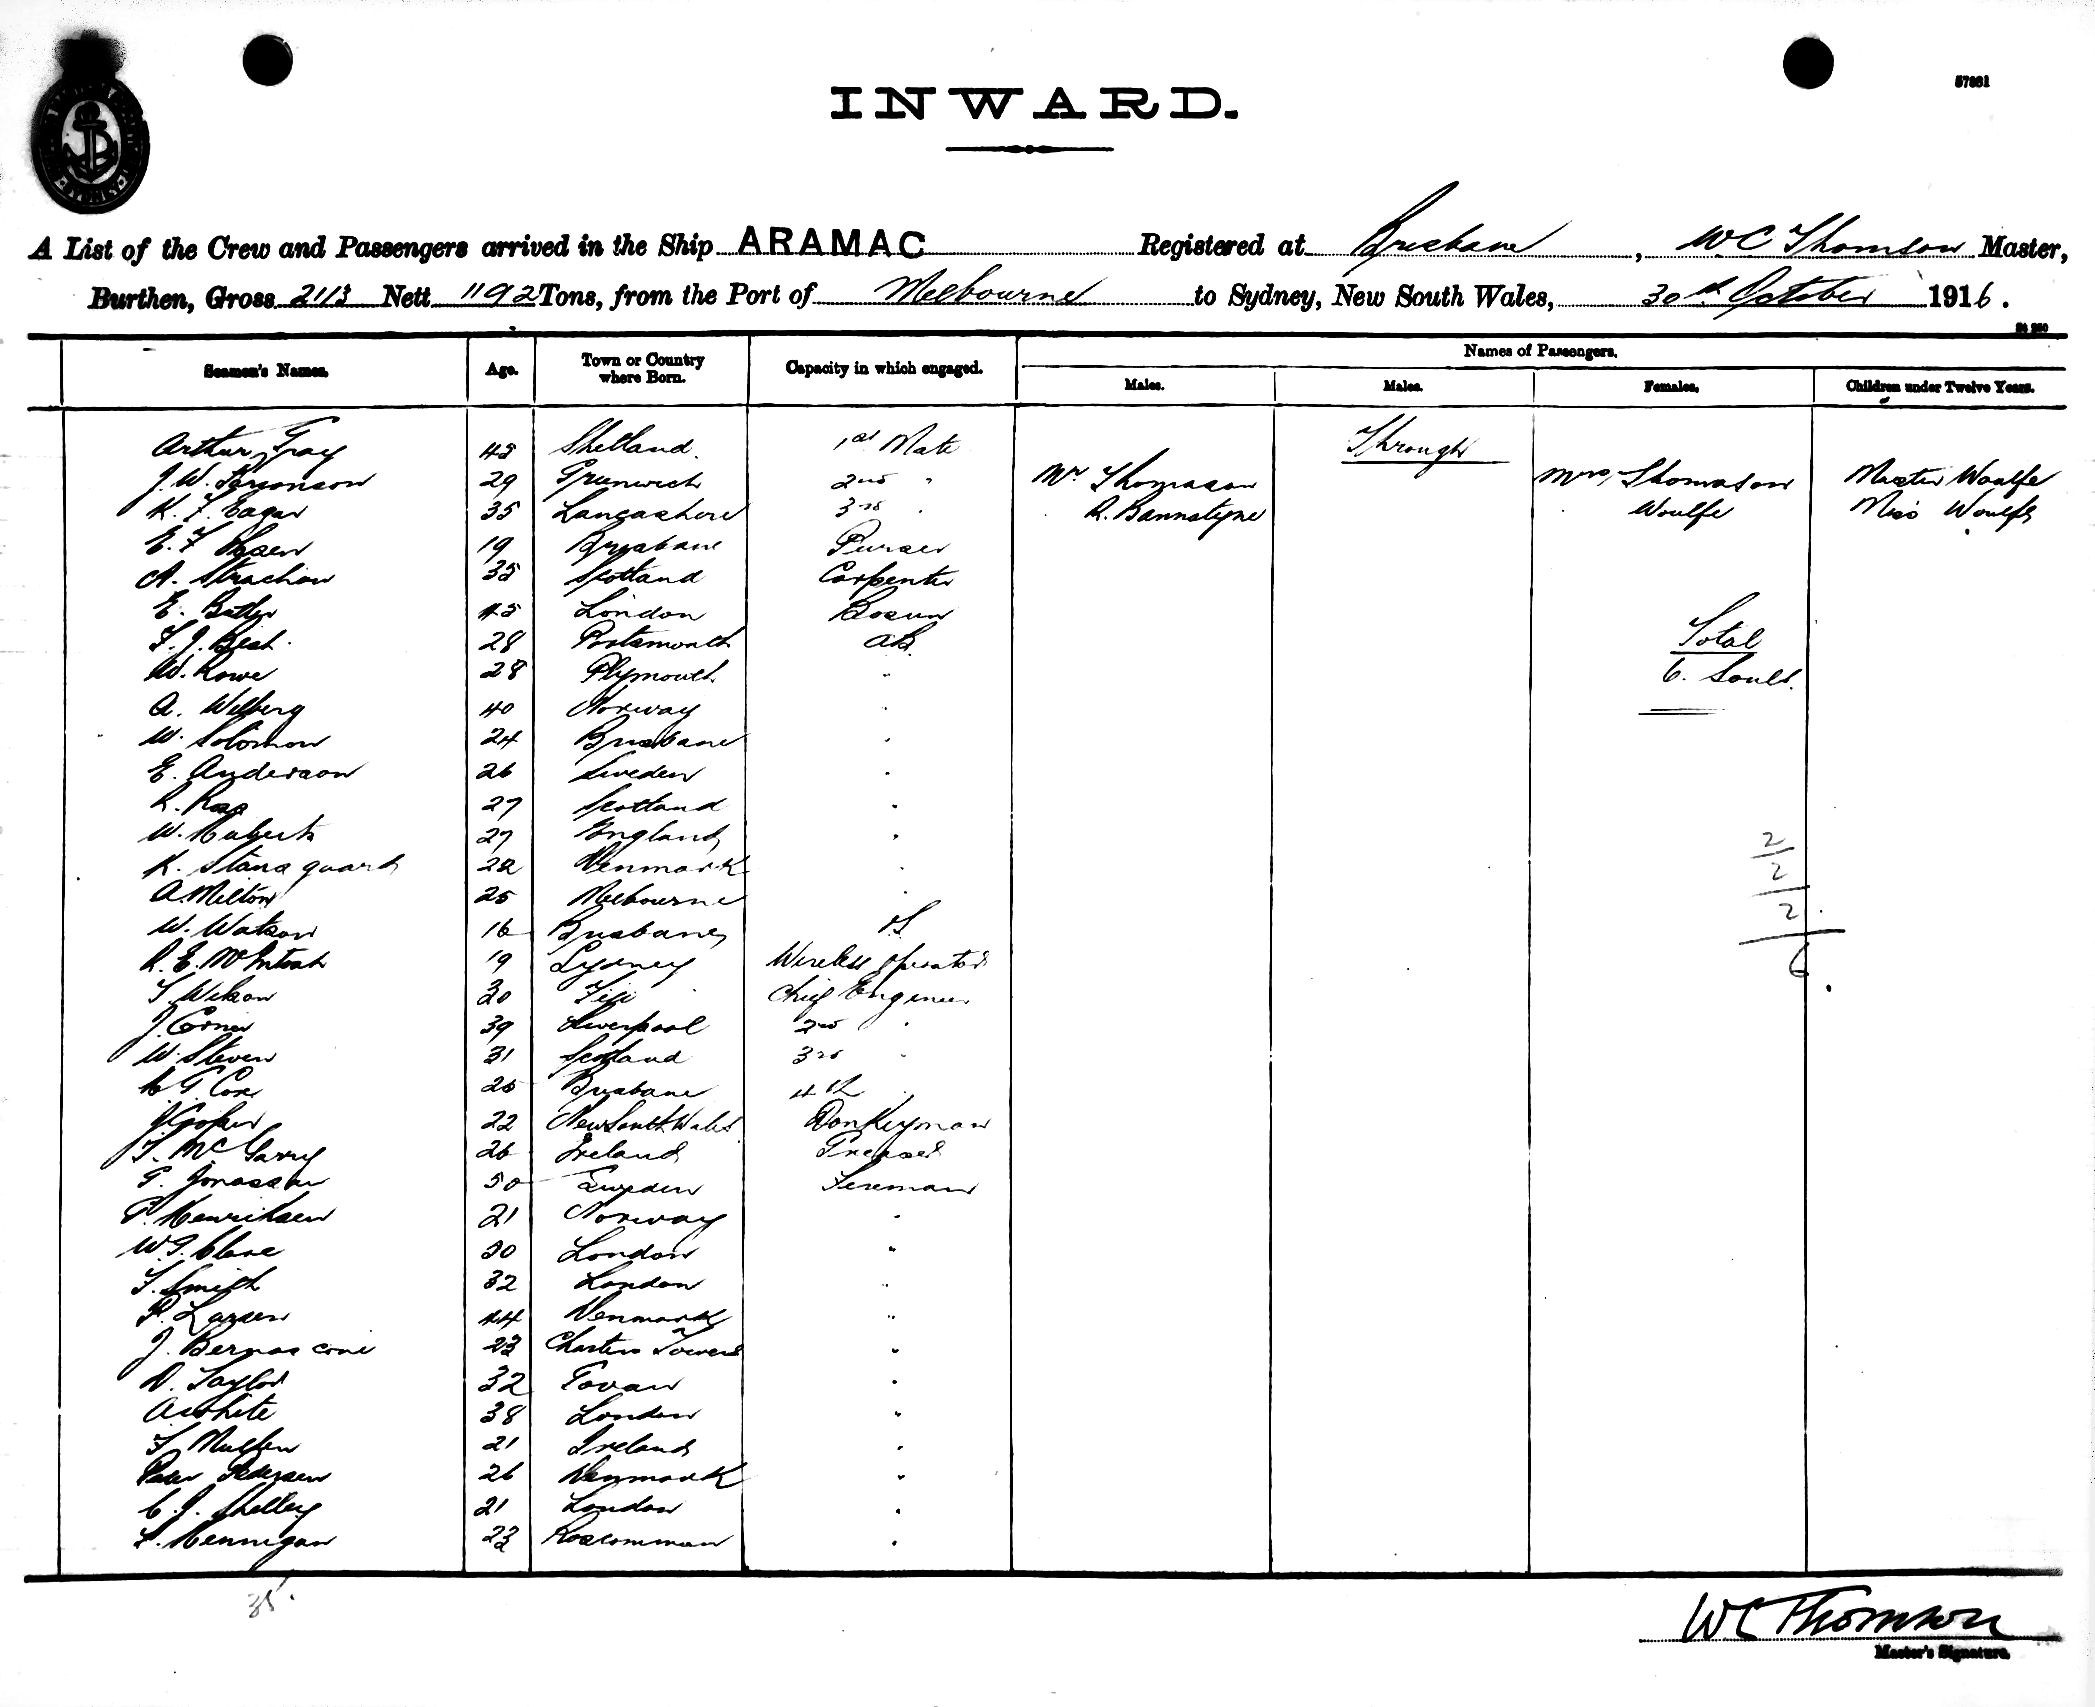 57881
INWARD.
A List of the Crew and Passengers arrived in the Ship ARAMAC Registered at Brisbane, W C Thomson Master,
Burthen, Gross 2113 Nett 1192 Tons, from the Port of Melbourne to Sydney, New South Wales, 30th October 1916.
Names of Passengers.
Seamen's Names. Age. Town or Country where Born. Capacity in which engaged. Males. Males. Females. Children under Twelve Years.
Through
Arthur Gray 45 Shetland. 1st Mate
J. W. 29 Greenwich 2nd " Mr Thomason Mrs Thomason Master Woulfe
K. F. Eagar 35 Lancashire 3rd " R. Bannatyne Woulfe Miss Woulfe
E. F. 19 Brisbane Purser
A. Strachan 35 Scotland Carpenter
E. Butler 45 London Bosun
F. J. Best. 28 Portsmouth AB. Total
W. Rowe 28 Plymouth " 6. Souls.
A. Wilberg 40 Norway "
W. Solomon 24 Brisbane "
E. Anderson 26 Sweden "
R. Ross 27 Scotland "
W. 27 England " 2
K. 22 Denmark " 2
A. Milton 25 Melbourne "
W. Watson 16 Brisbane OS 2
R. E. McIntosh 19 Sydney Wireless Operator 6
T. Wilson 30 Fiji Chief Engineer
J. Corner 39 Liverpool 2nd "
W. Steven 31 Scotland 3rd "
H G Cox 25 Brisbane 4th
J Cooper 22 New South Wales Donkeyman
T. McGarry 26 Ireland Greaser
G. Jonassen 50 Sweden Fireman
P. Henriksen 21 Norway "
W. G. Clare 30 London "
F. Smith 32 London "
P. Larsen 44 Denmark "
J. Bernasconi 23 Charters Towers "
D. Taylor 32 Govan "
A White 38 London "
F. Mullen 21 Ireland "
Peder Pedersen 26 Denmark "
C. J. Shelley 21 London "
L. Hennigan 23 Roscommon "
35
W C Thomson
Master's Signature.